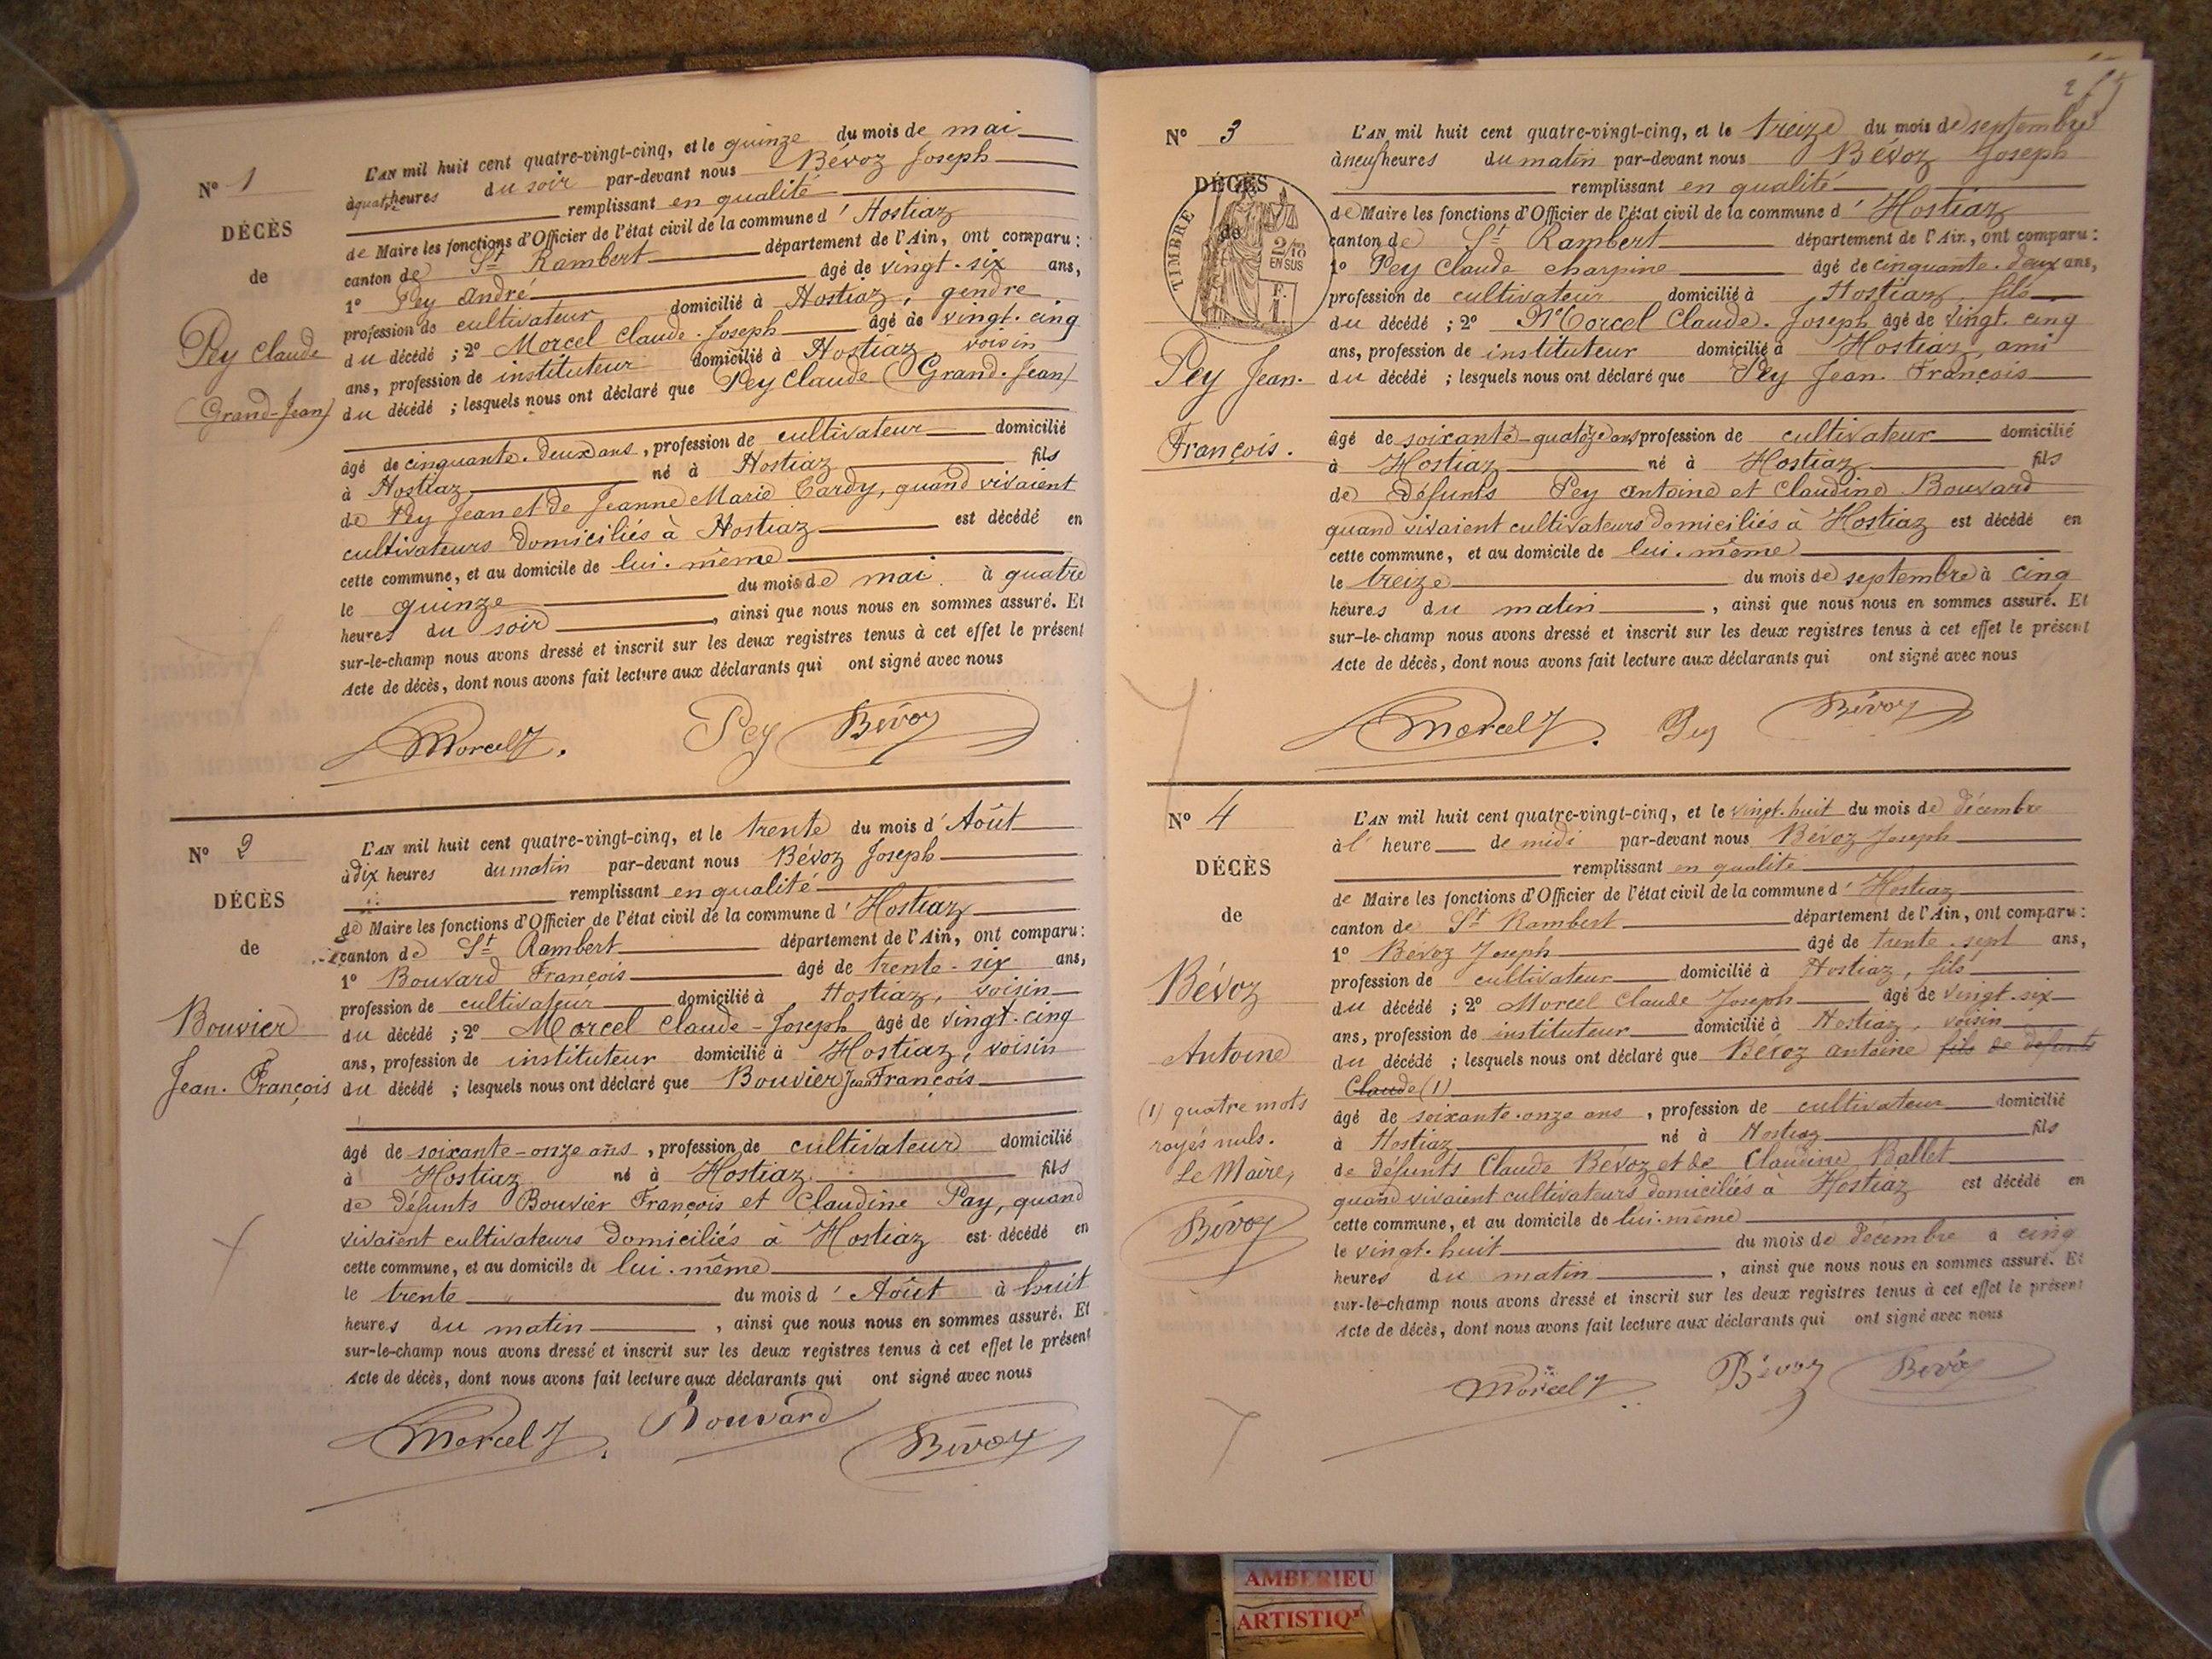 N° 1
DÉCÈS
de
Pey Claude
(Grand-Jean)
L'AN mil huit cent quatre-vingt-cinq, et le quinze du mois de mai
à quatre heures du soir par-devant nous Bévoz Joseph
remplissant en qualité
de Maire les fonctions d'Officier de l'état civil de la commune d'Hostiaz
canton de St Rambert département de l'Ain, ont comparu :
1° Pey André âgé de vingt-six ans,
profession de cultivateur domicilié à Hostiaz, gendre
du décédé ; 2° Morcel Claude-Joseph âgé de vingt-cinq
ans, profession de instituteur domicilié à Hostiaz voisin
du décédé ; lesquels nous ont déclaré que Pey Claude (Grand-Jean)
âgé de cinquante-deux ans, profession de cultivateur domicilié
à Hostiaz né à Hostiaz fils
de Pey Jean et de Jeanne Marie Tardy, quand vivaient
cultivateurs domiciliés à Hostiaz est décédé en
cette commune, et au domicile de lui-même
le quinze du mois de mai à quatre
heures du soir, ainsi que nous nous en sommes assuré. Et
sur-le-champ nous avons dressé et inscrit sur les deux registres tenus à cet effet le présent
Acte de décès, dont nous avons fait lecture aux déclarants qui ont signé avec nous
Morcel J. Pey Bévoz
N° 2
DÉCÈS
de
Bouvier
Jean-François
L'AN mil huit cent quatre-vingt-cinq, et le trente du mois d'Août
à dix heures du matin par-devant nous Bévoz Joseph
remplissant en qualité
de Maire les fonctions d'Officier de l'état civil de la commune d'Hostiaz
canton de St Rambert département de l'Ain, ont comparu :
1° Bouvard François âgé de trente-six ans,
profession de cultivateur domicilié à Hostiaz, voisin
du décédé ; 2° Morcel Claude-Joseph âgé de vingt-cinq
ans, profession de instituteur domicilié à Hostiaz, voisin
du décédé ; lesquels nous ont déclaré que Bouvier Jean François
âgé de soixante-onze ans, profession de cultivateur domicilié
à Hostiaz né à Hostiaz fils
de défunts Bouvier François et Claudine Pay, quand
vivaient cultivateurs domiciliés à Hostiaz est décédé en
cette commune, et au domicile de lui-même
le trente du mois d'Août à huit
heures du matin, ainsi que nous nous en sommes assuré. Et
sur-le-champ nous avons dressé et inscrit sur les deux registres tenus à cet effet le présent
Acte de décès, dont nous avons fait lecture aux déclarants qui ont signé avec nous
Morcel J. Bouvard Bévoz
N° 3
DÉCÈS
de
TIMBRE
2/10
EN SUS
Pey Jean-
François.
L'AN mil huit cent quatre-vingt-cinq, et le treize du mois de septembre
à neuf heures du matin par-devant nous Bévoz Joseph
remplissant en qualité
de Maire les fonctions d'Officier de l'état civil de la commune d'Hostiaz
canton de St Rambert département de l'Ain, ont comparu :
1° Pey Claude Charpine âgé de cinquante-deux ans,
profession de cultivateur domicilié à Hostiaz, fils
du décédé ; 2° Morcel Claude-Joseph âgé de vingt-cinq
ans, profession de instituteur domicilié à Hostiaz, ami
du décédé ; lesquels nous ont déclaré que Pey Jean-François
âgé de soixante-quatoze ans profession de cultivateur domicilié
à Hostiaz né à Hostiaz fils
de défunts Pey Antoine et Claudine Bouvard
quand vivaient cultivateurs domiciliés à Hostiaz est décédé en
cette commune, et au domicile de lui-même
le treize du mois de septembre à cinq
heures du matin, ainsi que nous nous en sommes assuré. Et
sur-le-champ nous avons dressé et inscrit sur les deux registres tenus à cet effet le présent
Acte de décès, dont nous avons fait lecture aux déclarants qui ont signé avec nous
Morcel J. Pey Bévoz
N° 4
DÉCÈS
de
Bévoz
Antoine
(1) quatre mots
rayés nuls.
Le Maire,
Bévoz
L'AN mil huit cent quatre-vingt-cinq, et le vingt-huit du mois de décembre
à l'heure de midi par-devant nous Bévoz Joseph
remplissant en qualité
de Maire les fonctions d'Officier de l'état civil de la commune d'Hostiaz
canton de St Rambert département de l'Ain, ont comparu :
1° Bévoz Joseph âgé de trente-sept ans,
profession de cultivateur domicilié à Hostiaz, fils
du décédé ; 2° Morcel Claude Joseph âgé de vingt-six
ans, profession de instituteur domicilié à Hostiaz, voisin
du décédé ; lesquels nous ont déclaré que Bévoz Antoine fils de défunts
Claude (1)
âgé de soixante-onze ans, profession de cultivateur domicilié
à Hostiaz né à Hostiaz fils
de défunts Claude Bévoz et de Claudine Ballet
quand vivaient cultivateurs domiciliés à Hostiaz est décédé en
cette commune, et au domicile de lui-même
le vingt-huit du mois de décembre à cinq
heures du matin, ainsi que nous nous en sommes assuré. Et
sur-le-champ nous avons dressé et inscrit sur les deux registres tenus à cet effet le présent
Acte de décès, dont nous avons fait lecture aux déclarants qui ont signé avec nous
Morcel J. Bévoz Bévoz
AMBERIEU
ARTISTIQ